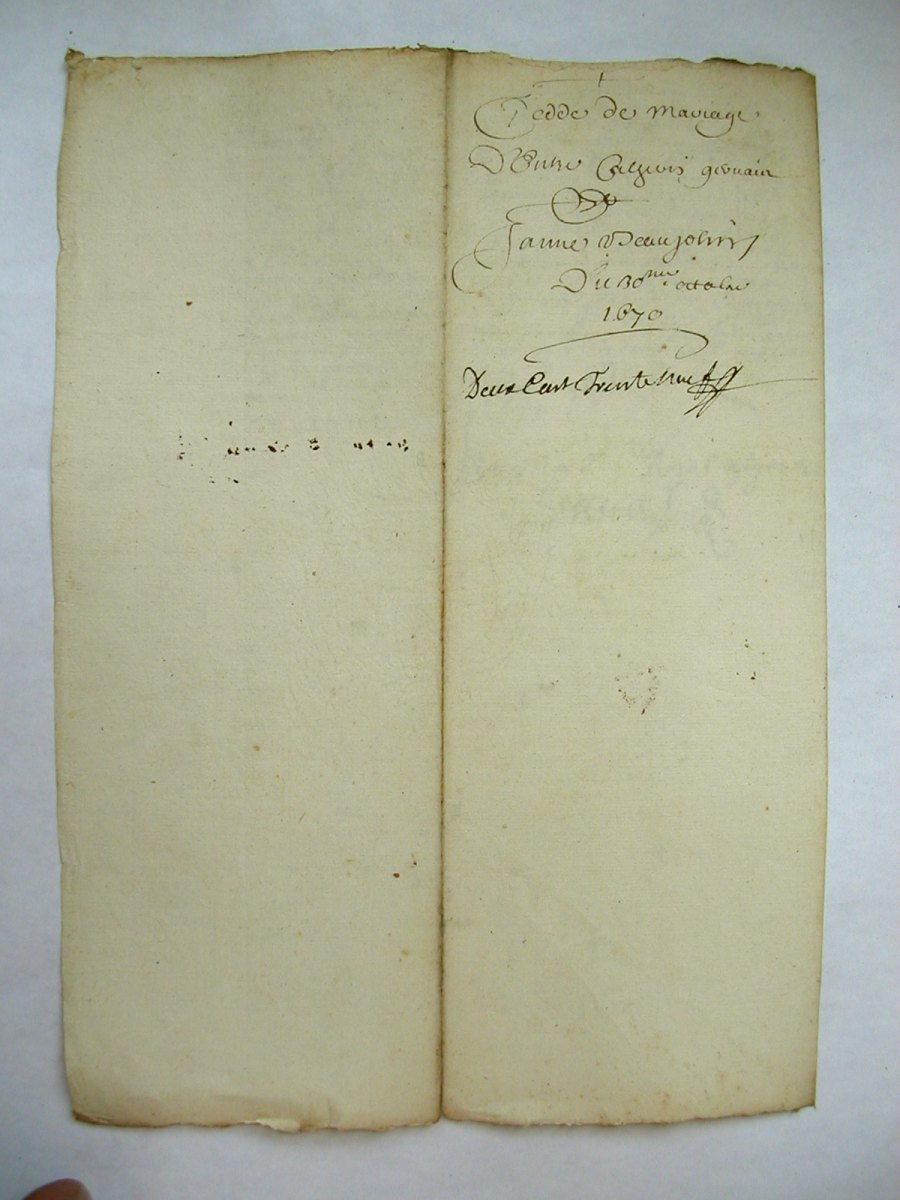 Tedde de mariage
D'Entre germain
Et
Janne Beaujolin
Du 30me octobre
1670
Deux Cent Trente neuf